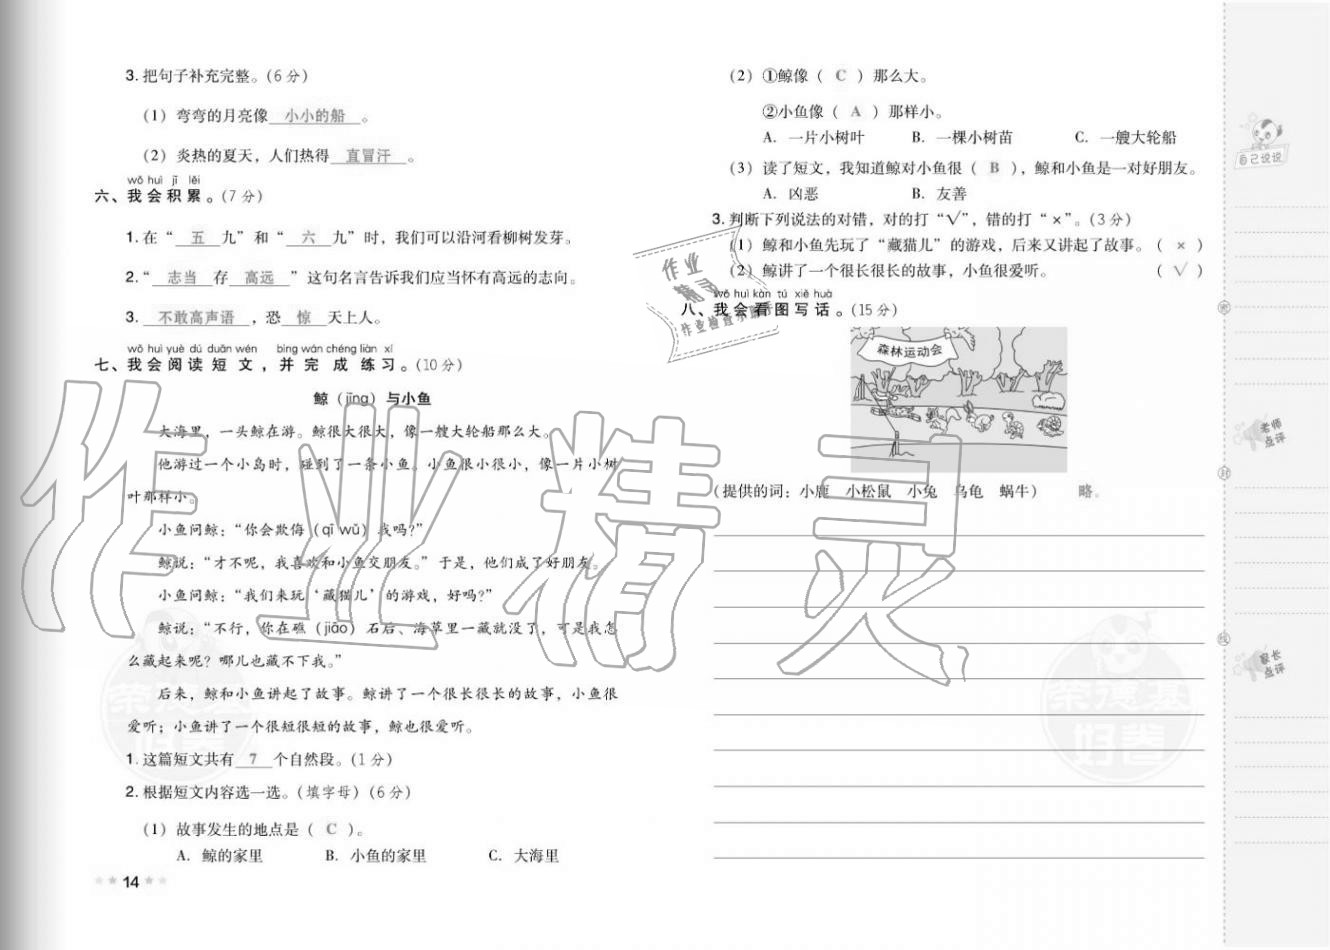 3. 把句子补充完整。(6 分)
(1) 弯弯的月亮像 小小的船 。
(2) 炎热的夏天，人们热得 直冒汗 。
wǒ huì jī lěi
六、我会积累。(7 分)
1. 在“ 五 九”和“ 六 九”时，我们可以沿河看柳树发芽。
2. “ 志当 存 高远 ”这句名言告诉我们应当怀有高远的志向。
3. 不敢高声语 ，恐 惊 天上人。
wǒ huì yuè dú duǎn wén bìng wán chéng liàn xí
七、我会阅读短文，并完成练习。(10 分)
鲸（jīng）与小鱼
大海里，一头鲸在游。鲸很大很大，像一艘大轮船那么大。
他游过一个小岛时，碰到了一条小鱼。小鱼很小很小，像一片小树
叶那样小。
小鱼问鲸：“你会欺侮（qī wǔ）我吗？”
鲸说：“才不呢，我喜欢和小鱼交朋友。”于是，他们成了好朋友。
小鱼问鲸：“我们来玩‘藏猫儿’的游戏，好吗？”
鲸说：“不行，你在礁（jiāo）石后、海草里一藏就没了，可是我怎
么藏起来呢？哪儿也藏不下我。”
后来，鲸和小鱼讲起了故事。鲸讲了一个很长很长的故事，小鱼很
爱听；小鱼讲了一个很短很短的故事，鲸也很爱听。
1. 这篇短文共有 7 个自然段。(1 分)
2. 根据短文内容选一选。(填字母)(6 分)
(1) 故事发生的地点是（ C ）。
A. 鲸的家里 B. 小鱼的家里 C. 大海里
14
(2) ①鲸像（ C ）那么大。
②小鱼像（ A ）那样小。
A. 一片小树叶 B. 一棵小树苗 C. 一艘大轮船
(3) 读了短文，我知道鲸对小鱼很（ B ），鲸和小鱼是一对好朋友。
A. 凶恶 B. 友善
3. 判断下列说法的对错，对的打“√”，错的打“×”。(3 分)
(1) 鲸和小鱼先玩了“藏猫儿”的游戏，后来又讲起了故事。（ × ）
(2) 鲸讲了一个很长很长的故事，小鱼很爱听。（ √ ）
wǒ huì kàn tú xiě huà
八、我会看图写话。(15 分)
森林运动会
(提供的词：小鹿 小松鼠 小兔 乌龟 蜗牛) 略。
自己说说
老师
点评
家长
点评
密
封
线
作业精灵
作业
精灵
荣德基
好卷
荣德基
好卷